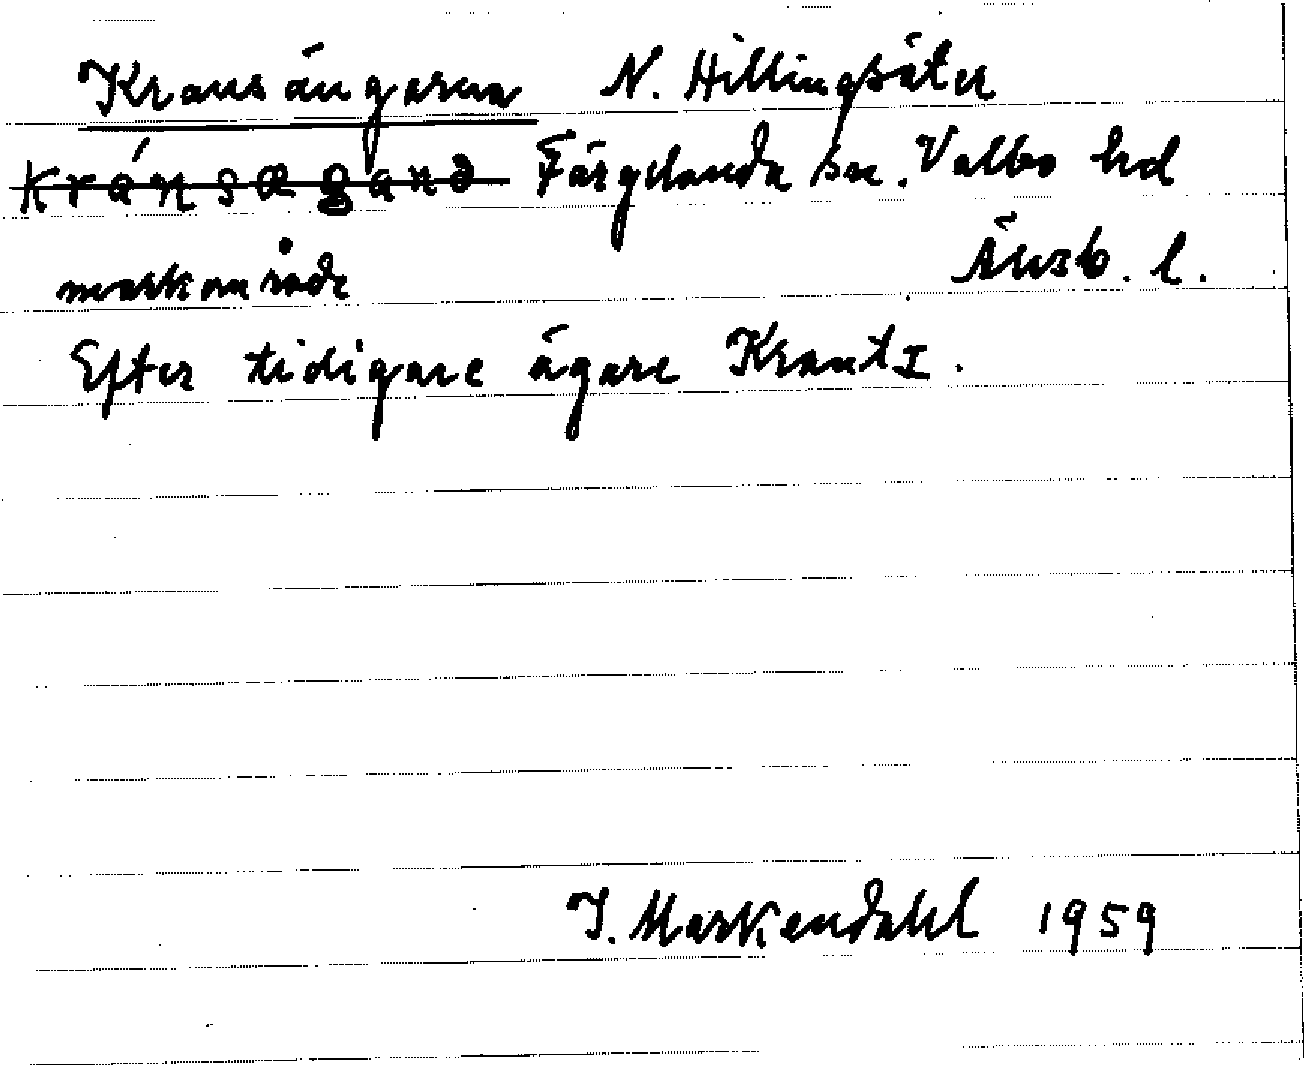 Kransängarna N. Hillingsäter
Färgelanda sn. Valbo hd
markområde Älvsb. l.
Efter tidigare ägare Krantz.
I. Markendahl 1959